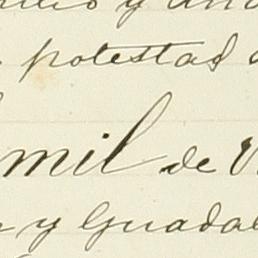 y
potestad
mil de
y Guadal